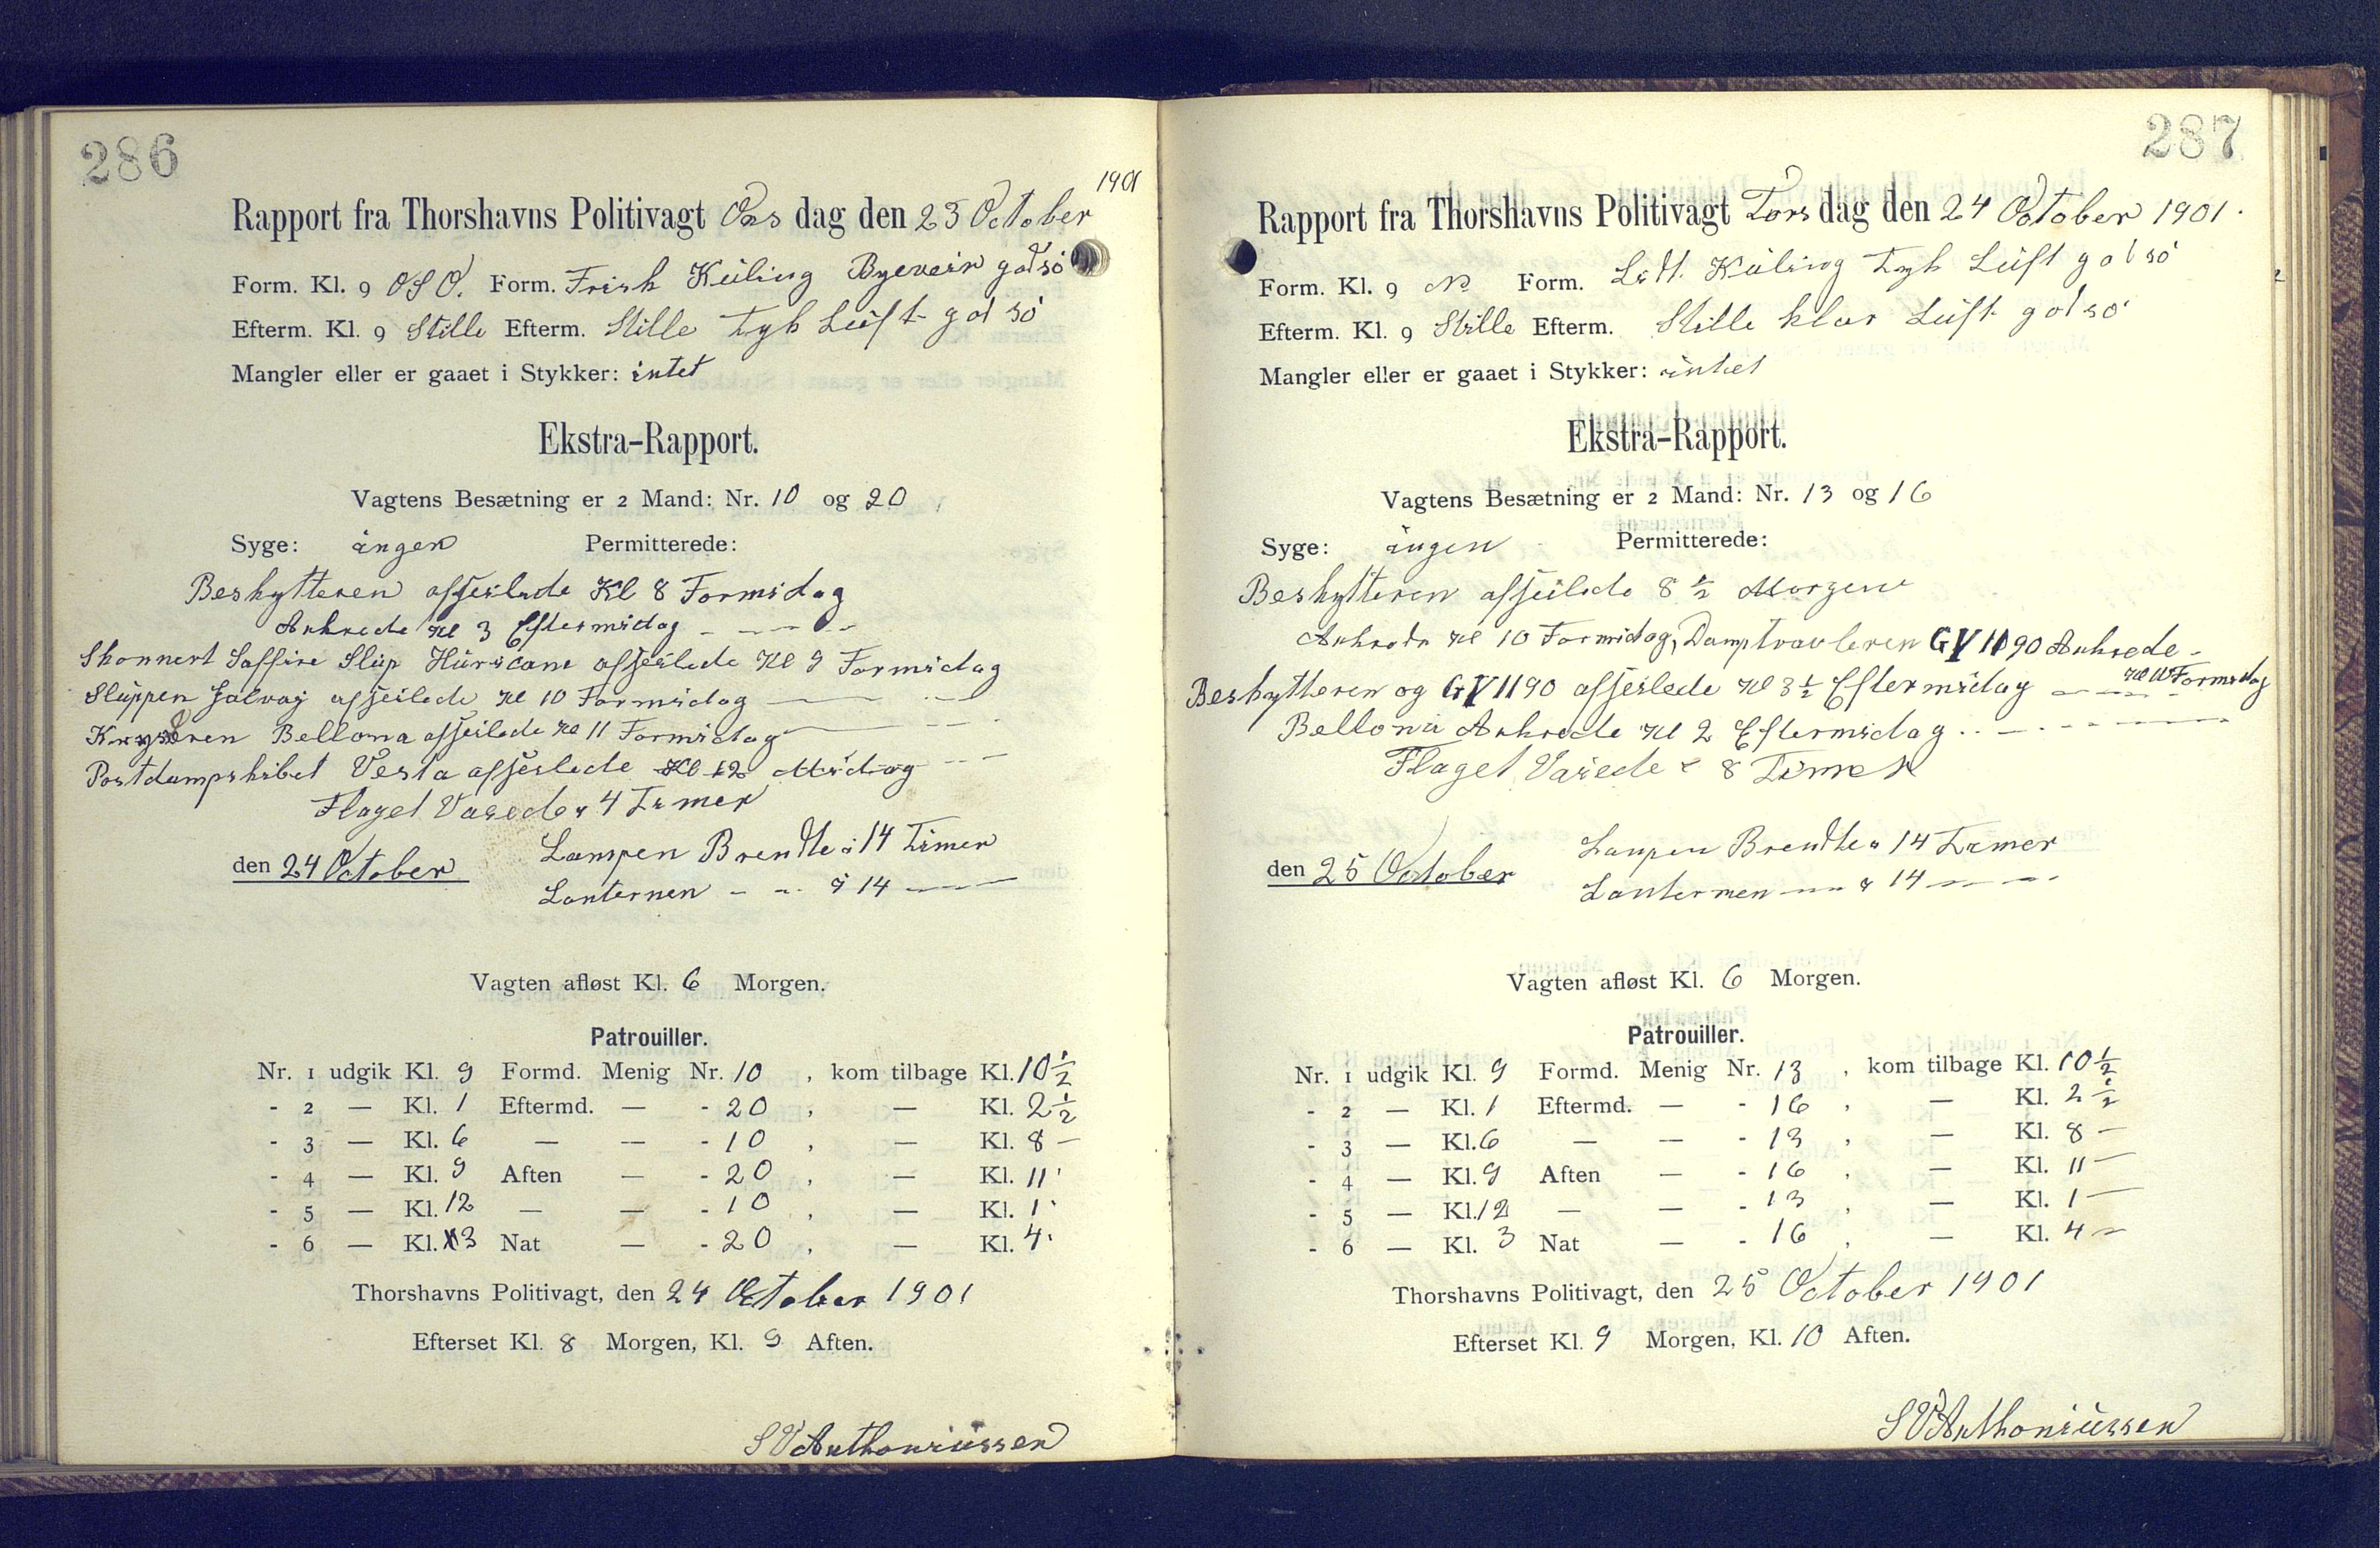 286
1901
Rapport fra Thorshavns Politivagt Ons dag den 23 October
Form. Kl. 9 OSO. Form. Frish Küling Byeveir god sö
Efterm. Kl. 9 Stille Efterm. Stille tyk Lüft god sö
Mangler eller er gaaet i Stykker: intet
Ekstra-Rapport.
Vagtens Besætning er 2 Mand: Nr. 10 og 20
Syge: ingen Permitterede:
Beskytteren afseilede Kl 8 Formidag
Ankrede Kl 3 Eftermidag - - - -
Skonnert Saffire Slüp Hüricane afseilede Kl 9 Formidag
Slüppen afseilede Kl 10 Formidag — - —
Bellona afseilede Kl 11 Formidag — - - -
Postdampskibet Vesta afseilede Kl 12 Midag - - -
Flaget Vaiede 4 Timer
den 24 October Lampen Brendte i 14 Timer
Lanternen - - i 14 — —
Vagten afløst Kl. 6 Morgen.
Patrouiller.
Nr. 1 udgik Kl. 9 Formd. Menig Nr. 10 , kom tilbage Kl. 10 1/2
- 2 — Kl. 1 Eftermd. — - 20 , — Kl. 2 1/2
- 3 — Kl. 6 — — - 10 , — Kl. 8 —
- 4 — Kl. 9 Aften — - 20 , — Kl. 11
- 5 — Kl. 12 — — - 10 , — Kl. 1
- 6 — Kl. 3 Nat — - 20 , — Kl. 4
Thorshavns Politivagt, den 24 October 1901
Efterset Kl. 8 Morgen, Kl. 9 Aften.
SVAnthoniüssen
287
Rapport fra Thorshavns Politivagt Tors dag den 24 October 1901.
Form. Kl. 9 N Form. Lidt Küling tyk Lüft god sö
Efterm. Kl. 9 Stille Efterm. Stille klar Lüft god sö
Mangler eller er gaaet i Stykker: intet
Ekstra-Rapport.
Vagtens Besætning er 2 Mand: Nr. 13 og 16
Syge: ingen Permitterede:
Beskytteren afseilede 8 1/2 Morgen
Ankrede Kl 10 Formidag, Damptravleren GY 1190 Ankrede -
Kl 10 Formidag
Beskytteren og GY 1190 afseilede Kl 3 1/2 Eftermidag — - —
Bellona Ankrede Kl 2 Eftermidag . . — . - - —
Flaget Vaiede i 8 Timer
den 25 October Lampen Brendte i 14 Timer
Lanternen — - i 14 — —
Vagten afløst Kl. 6 Morgen.
Patrouiller.
Nr. 1 udgik Kl. 9 Formd. Menig Nr. 13 , kom tilbage Kl. 10 1/2
- 2 — Kl. 1 Eftermd. — - 16 , — Kl. 2 1/2
- 3 — Kl. 6 — — - 13 , — Kl. 8 —
- 4 — Kl. 9 Aften — - 16 , — Kl. 11 —
- 5 — Kl. 12 — — - 13 , — Kl. 1 —
- 6 — Kl. 3 Nat — - 16 , — Kl. 4 —
Thorshavns Politivagt, den 25 October 1901
Efterset Kl. 9 Morgen, Kl. 10 Aften.
SVAnthoniüssen